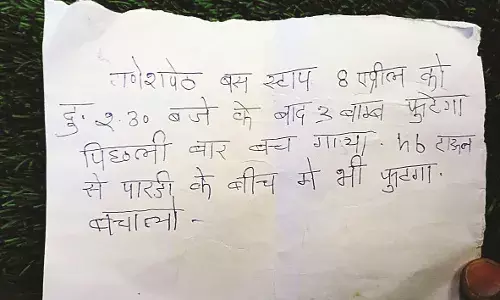 गणेशपेठ बस स्टाप 8 एप्रील को
दु. २.३० बजे के बाद ३ बाम्ब फुटेगा
पिछली बार बच गाया. hb टाऊन
से पारडी के बीच मे भी फुटगा.
बचालो -